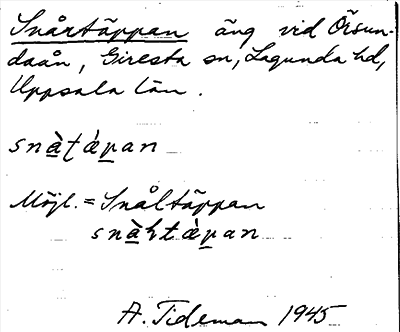 Snårtäppan äng vid Örsun-
daån, Giresta sn, Lagunda hd,
Uppsala län.
snàʈǽpan
Möjl. = Snåltäppan
A. Tideman 1945